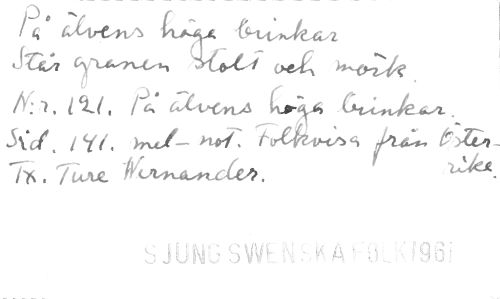 På älvens höga brinkar
Står granen stolt och mörk.
N:r. 121. På älvens höga brinkar.
Sid. 141. mel-not. Folkvisa från Öster-
rike.
Tx. Ture Wernander.
SJUNG SWENSKA FOLK 1961